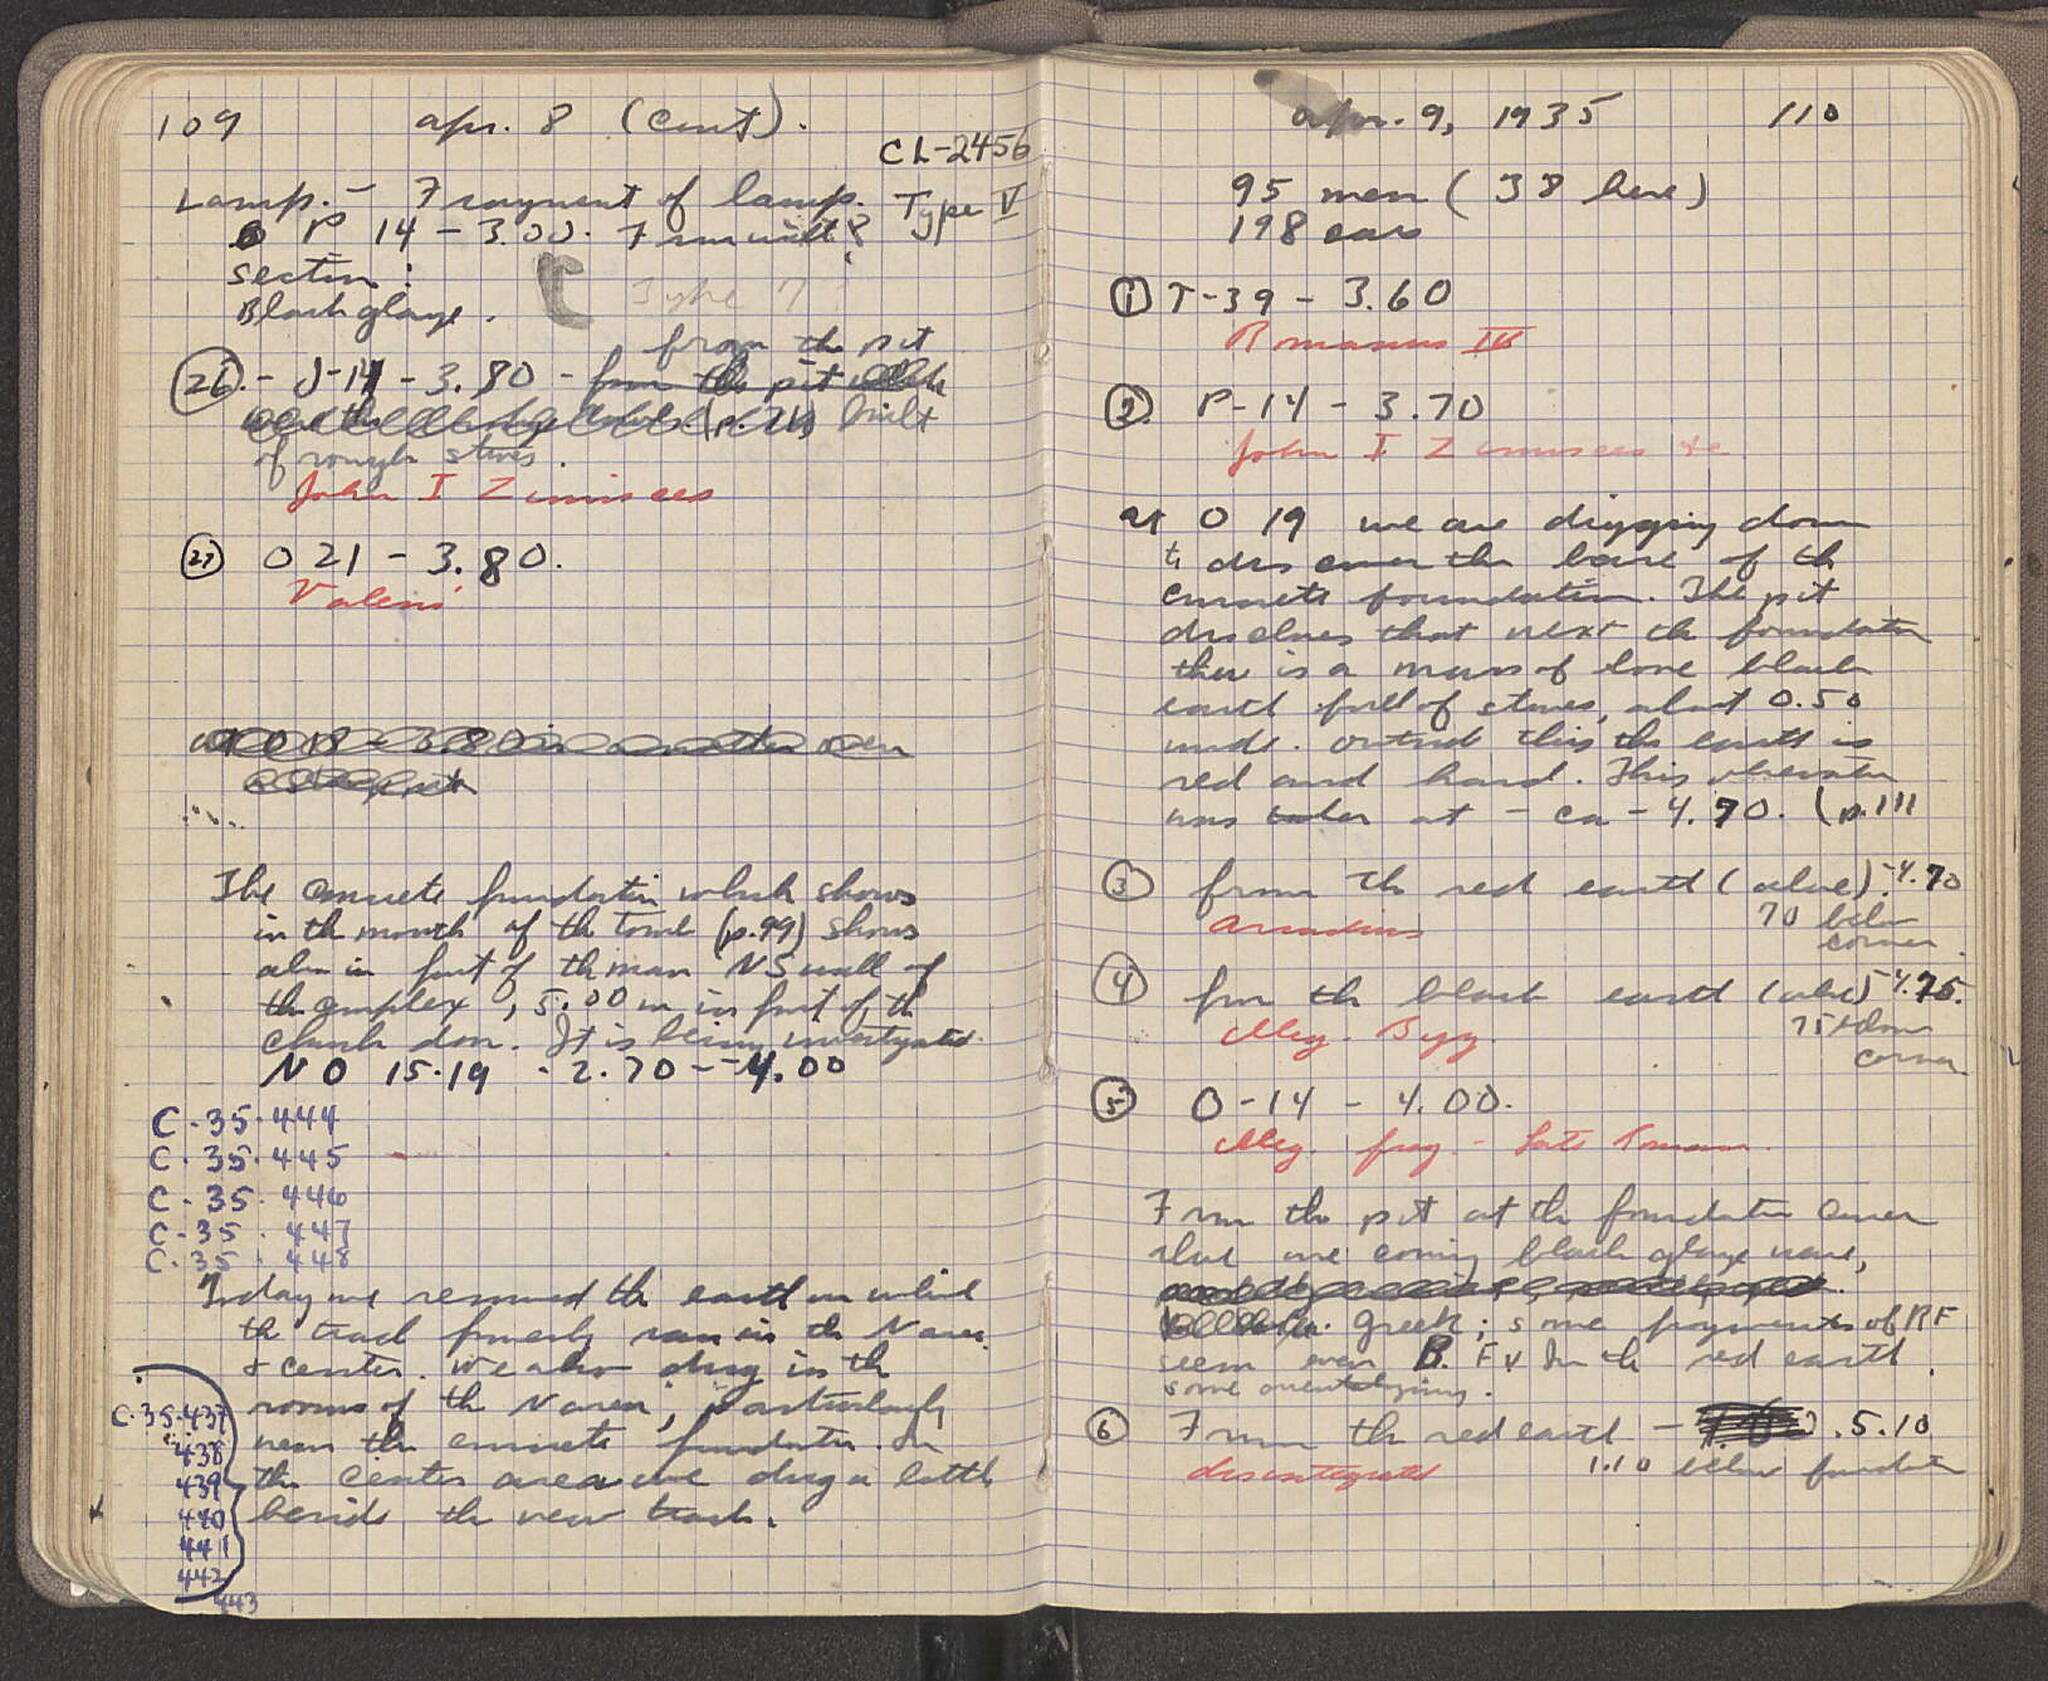 109 Apr. 8 (Cont).
CL-2456
Lamp. - Fragment of lamp. Type V
P 14 - 3.00. From well?
section:
Black glaze.
Type 7?
from the pit
(26) - J-14 - 3.80 - from the pit
where the (p. built
of rough stones.
John I Zimisces
(27) O 21 - 3.80.
Valens
at O 18 - 3.80 is another
The concrete foundation which shows
in the mouth of the tomb (p.99) shows
also in front of the main NS wall of
the complex, 5.00 m in front of the
church door. It is being investigated.
N O 15-19 - 2.70 - -4.00
C-35-444
C-35-445
C-35-446
C-35-447
C-35-448
Today we removed the earth on which
the track formerly ran in the N area
+ center. We also dug in the
rooms of the N area, particularly
near the concrete foundation. In
the center area we dug a little
beside the new track.
C-35-437
438
439
440
441
442
443
Apr. 9, 1935 110
95 men (38 here)
198 cars
(1) T-39 - 3.60
Romanus IV
(2) P-14 - 3.70
John I Zimisces
At O 19 we are digging down
to discover the base of the
concrete foundation. The pit
discloses that next the foundation
there is a mass of loose black
earth full of stones, about 0.50
wide. Outside this the earth is
red and hard. This observation
was taken at - ca - 4.70. (p.111
(3) from the red earth (above) -4.70
70 below
corner
Arcadius
(4) from the black earth (above) -4.75.
75 below
corner
Meg. Byz.
(5) O-14 - 4.00.
Illeg. frag. - Late Roman.
From the pit at the foundation corner
there are coming black glaze ware,
Greek; some fragments of RF
seem even B.F. + In the red earth
some orientalizing.
(6) From the red earth - -5.10
disintegrated 1.10 below foundation